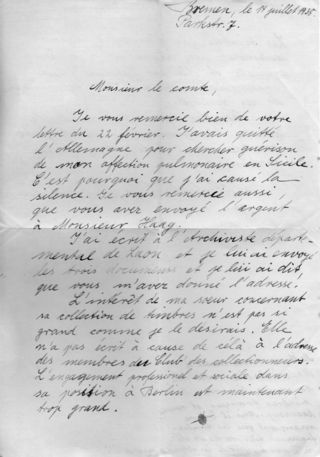 Bremen, le 14 juillet 1925
Parkstr. 7.
Monsieur le comte,
Je vous remercie bien de votre
lettre du 22 février. J'avais quitté
l'Allemagne pour chercher guérison
de mon affection pulmonaire en Sicile.
C'est pourquoi que j'ai causé la
silence. Je vous remercie aussi,
que vous avez envoyé l'argent
à Monsieur Haag.
J'ai écrit à l'Archiviste départe-
mental de Laon et je lui ai envoyé
les trois documents et je lui ai dit,
que vous m'avez donné l'adresse.
L'intérêt de ma sœur concernant
sa collection de timbres n'est pas si
grand comme je le désirais. Elle
n'a pas écrit à cause de celà à l'adresse
des membres du Club des collectionneurs.
L'engagement profesionel et sociale dans
sa position à Berlin est maintenant
trop grand.